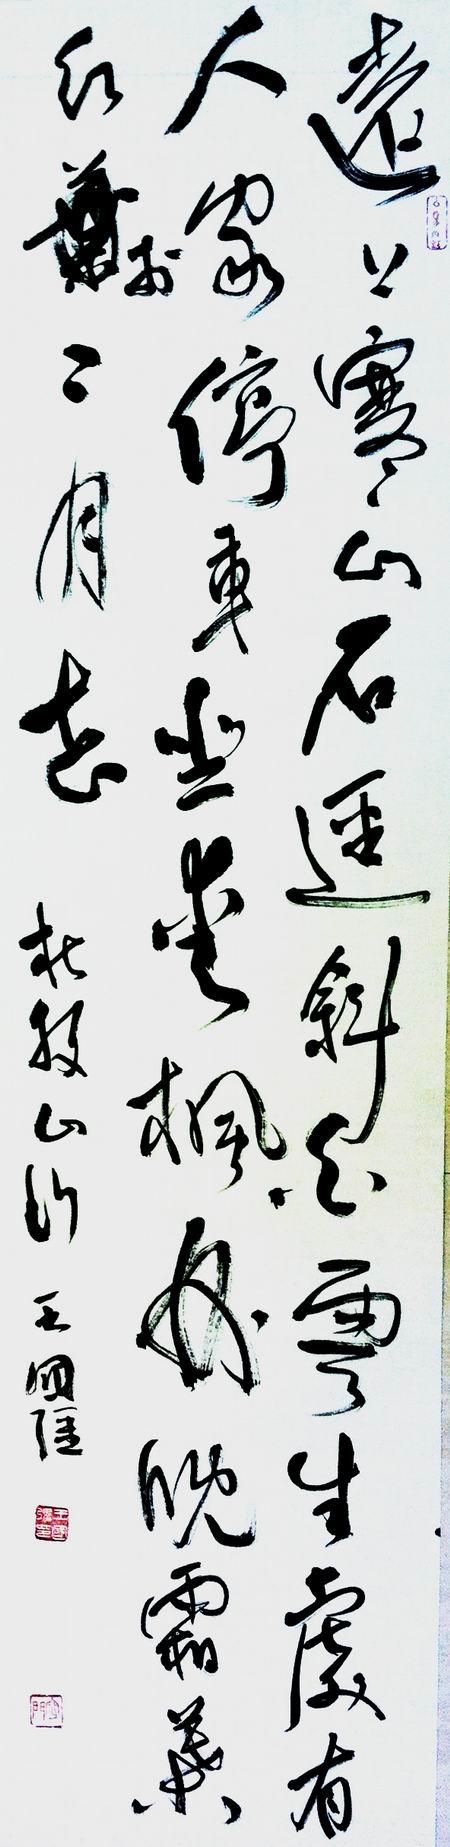 遠上寒山石逕斜白雲生處有
人家停車坐愛楓林晚霜葉
紅於二月花
杜牧山行 王國